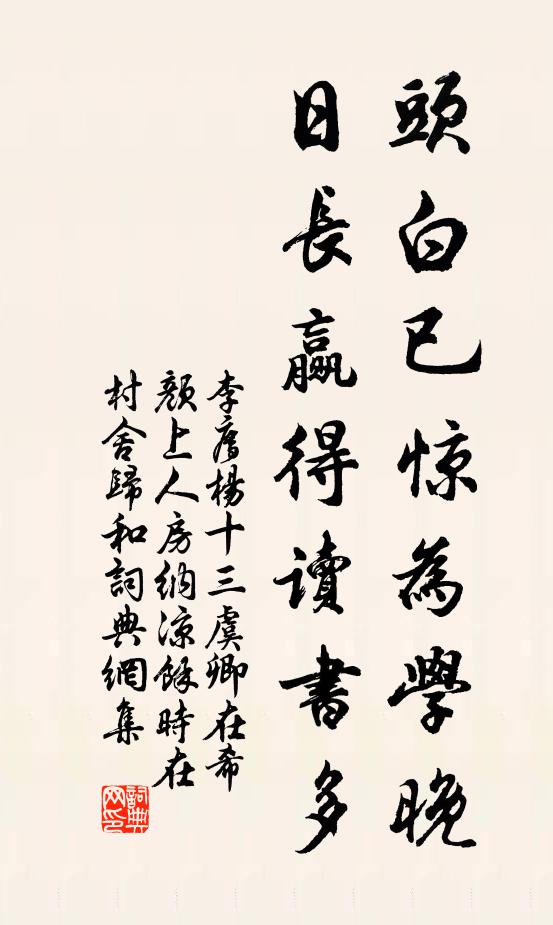 頭白已惊為學晚
日長贏得读書多
李膺楊十三虞卿在希
顏上人房納涼餘時在
村舍歸和詞典網集
詞典网印